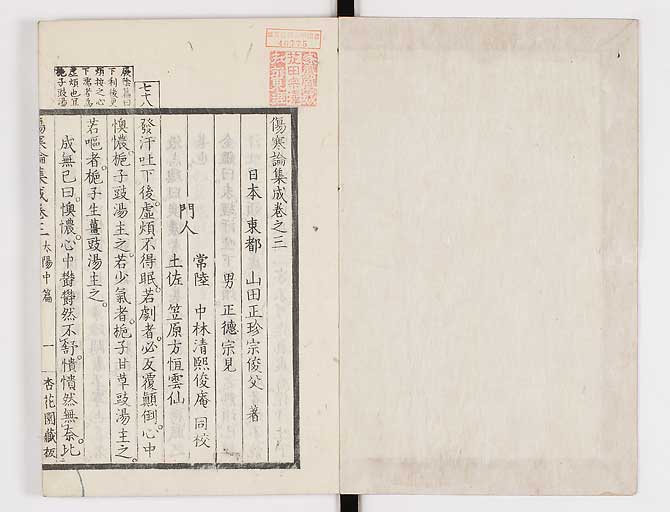 傷寒論集成卷之三
日本 東都 山田正珍宗俊父 著
男 正德宗見
門人
常陸 中林清熙俊庵 同校
土佐 笠原方恒雲仙
七十八
發汗吐下後。虛煩不得眠。若劇者。必反覆顛倒。心中
懊憹。梔子豉湯主之。若少氣者。梔子甘草豉湯主之。
若嘔者。梔子生薑豉湯主之。
成無己曰。懊憹。心中鬱鬱然不舒。憒憒然無奈。比
厥陰篇曰
下利後更
煩按之心
下濡者爲
虛煩也宜
梔子豉湯
傷寒論集成卷三 太陽中篇 一 杏花園藏板
40775